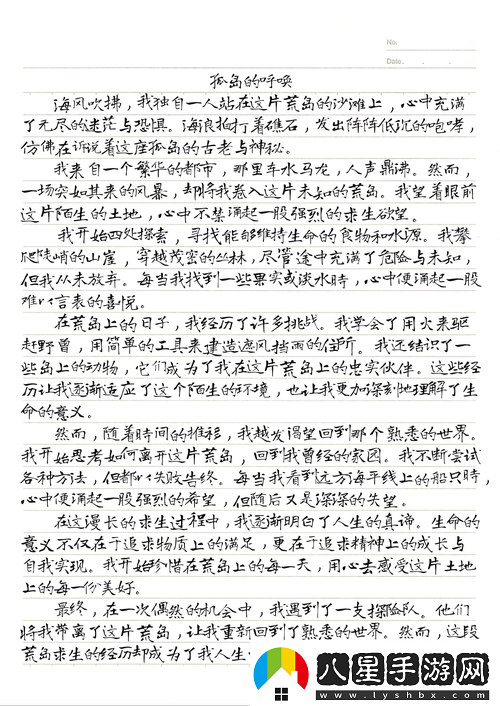 No.
Date . .
孤岛的呼唤
海风吹拂，我独自一人站在这片荒岛的沙滩上，心中充满
了无尽的迷茫与恐惧。海浪拍打着礁石，发出阵阵低沉的咆哮，
仿佛在诉说着这座孤岛的古老与神秘。
我来自一个繁华的都市，那里车水马龙，人声鼎沸。然而，
一场突如其来的风暴，却将我卷入这片未知的荒岛。我望着眼前
这片陌生的土地，心中不禁涌起一股强烈的求生欲望。
我开始四处探索，寻找能够维持生命的食物和水源。我攀
爬陡峭的山崖，穿越茂密的丛林，尽管途中充满了危险与未知，
但我从未放弃。每当我找到一些果实或淡水时，心中便涌起一股
难以言表的喜悦。
在荒岛上的日子，我经历了许多挑战。我学会了用火来驱
赶野兽，用简单的工具来建造遮风挡雨的住所。我还结识了一
些岛上的动物，它们成为了我在这片荒岛上的忠实伙伴。这些经
历让我逐渐适应了这个陌生的环境，也让我更加深刻地理解了生
命的意义。
然而，随着时间的推移，我越发渴望回到那个熟悉的世界。
我开始思考如何离开这片荒岛，回到我曾经的家园。我不断尝试
各种方法，但都以失败告终。每当我看到远方海平线上的船只时，
心中便涌起一股强烈的希望，但随后又是深深的失望。
在这漫长的求生过程中，我逐渐明白了人生的真谛。生命的
意义不仅在于追求物质上的满足，更在于追求精神上的成长与
自我实现。我开始珍惜在荒岛上的每一天，用心去感受这片土地
上的每一份美好。
最终，在一次偶然的机会中，我遇到了一支探险队。他们
将我带离了这片荒岛，让我重新回到了熟悉的世界。然而，这段
荒岛求生的经历却成为了我人生
八星手游网
www.lyshbx.com